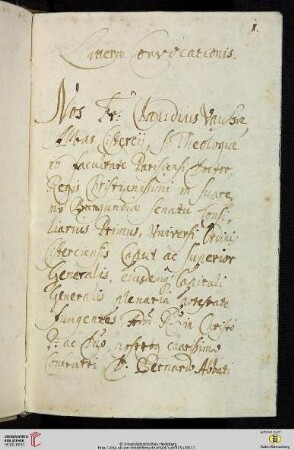 1.
Littera Convocationis.
Nos Fr: Claudius Vaussin
Abbas Cistercii, S. Theologiæ
in facultate Parisiensi Doctor,
Regis Christianissimi in suprem
mo Burgundiæ Senatu Consi-
liarius Primus, Universi Ordinis
Cisterciensis Caput ac Superior
Generalis, eiusdemq Capituli
Generalis plenaria potestate
fungentes
in Christo
P: ac
nostro carissimo
Confratri D. Bernardo Abbati
UNIVERSITÄTS-
BIBLIOTHEK
HEIDELBERG
© Universitätsbibliothek Heidelberg
Baden-Württemberg